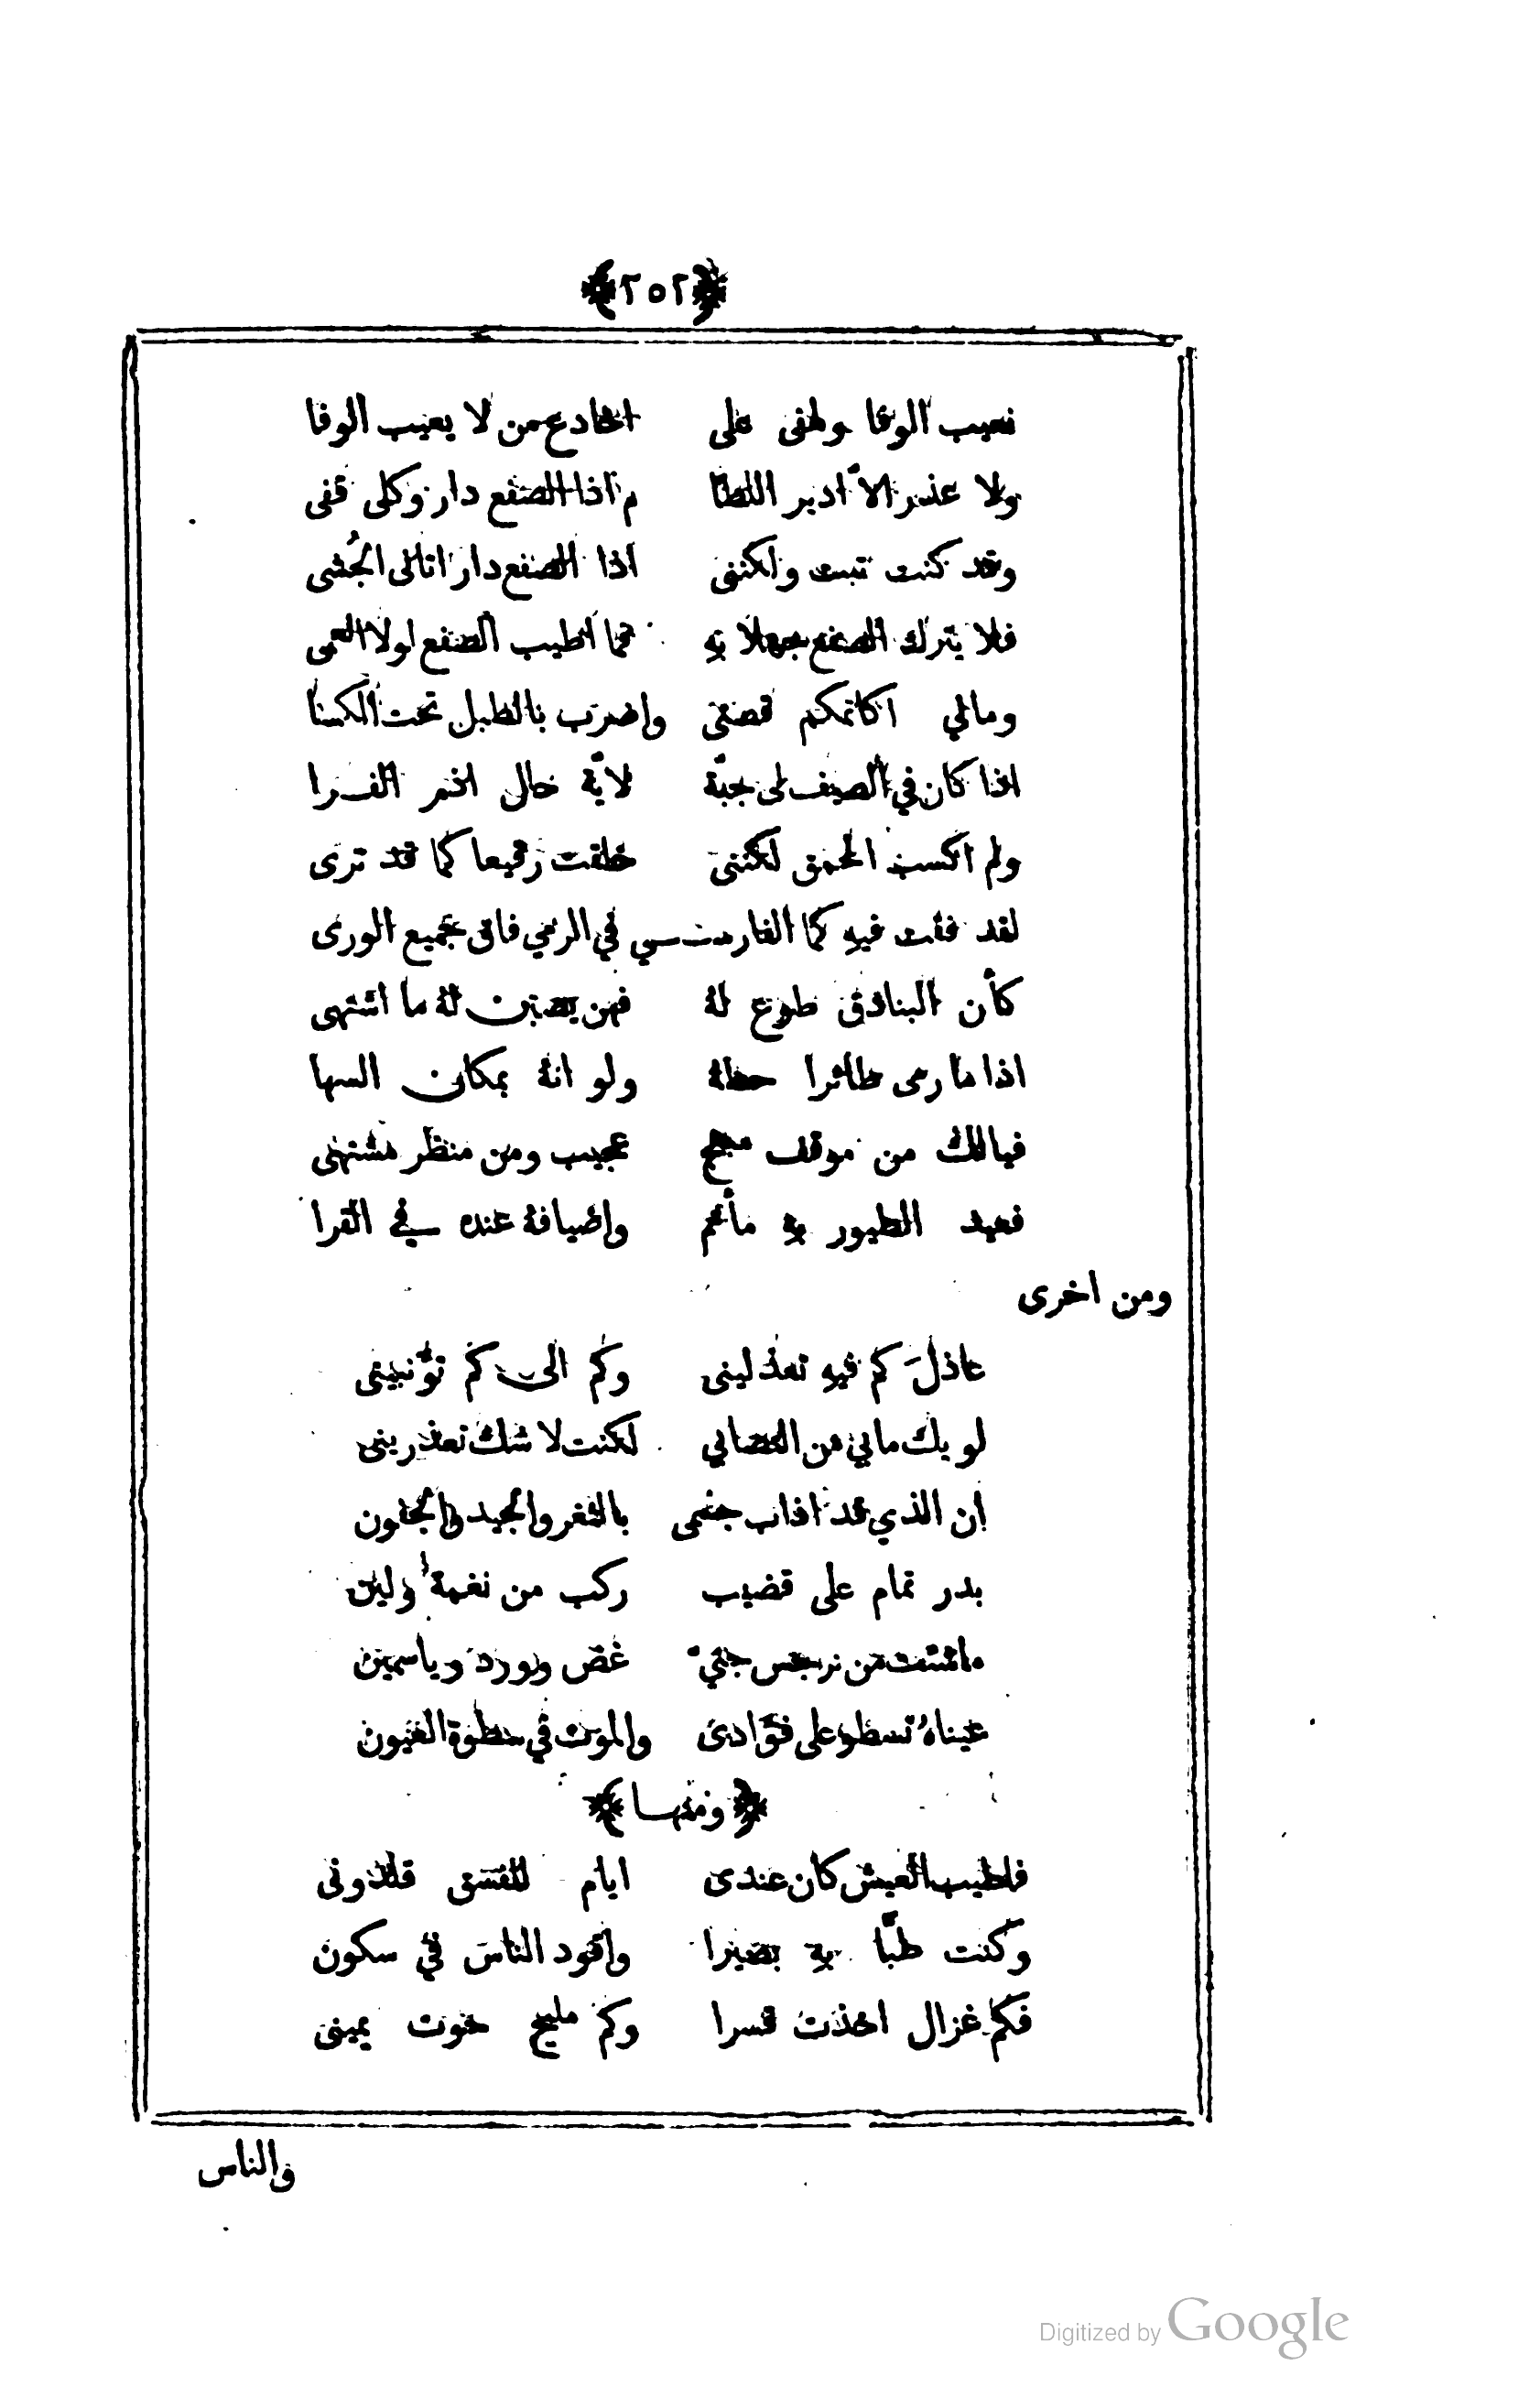 ﴿٢٥٢﴾
نعيب الوفا ولهفى على اخادع من لا يعيب الوفا
ولا عذر الا ادير اللطا م اذا الصفع دار وكلى قفى
وقد كنت تبت ولكننى اذا الصفع دار اتانى الجُشى
فلا يترك الصفع جهلا به فما اطيب الصفع لولا العمى
ومالي اكاتمكم قصتى واضرب بالطبل تحت الكسا
اذا كان في الصيف لى جبّة لايّة حال اذم الفرا
ولم اكسب الحمق لكننى خلقت رقيعا كما قد ترى
لقد فقت فيه كما الفارسي في الرمي فاق جميع الورى
كأن البنادق طوع له فهن يصبن له ما اشتهى
اذا ما رمى طائرا حطهُ ولو انهُ بمكان السها
فيالك من موقف مبهج عجيب ومن منظر مشتهى
فعيد الطيور به مأتم واضيافهُ عنده في القرا
ومن اخرى
عاذلَ كم فيه تعذلينى وكم الى كم تؤّنبينى
لو بك مابي من التصابي لكنت لا شك تعذرينى
إن الذي قد اذاب جسمى بالثغر والجيد والجفون
بدر تمام على قضيب ركب من نعمة ولين
ماشئت من نرجس جني غض وورد وياسمين
عيناهُ تسطو على فؤادى والموت في سطوة العيون
﴿ومنها﴾
فاطيب العيش كان عندى ايام للفسق قلدونى
وكنت طبًّا به بصيرا واقود الناس في سكون
فكم غزال اخذت قسرا وكم مليح حوت يمينى
والناس
Digitized by Google